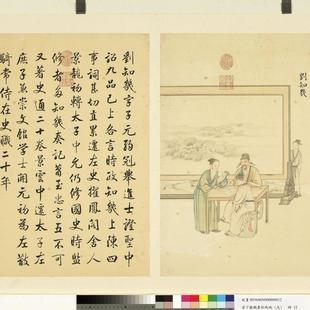 劉知幾
劉知幾字子元弱冠舉進士證聖中
詔九品已上各言時政知幾上陳四
事詞甚切直累遷左史擢鳳閣舍人
景龍初轉太子中允仍修國史時監
修者多知幾奏記蕭至忠言五不可
又著史通二十卷景雲中遷太子左
庶子兼崇文館學士開元初為左散
騎常侍在史職二十年